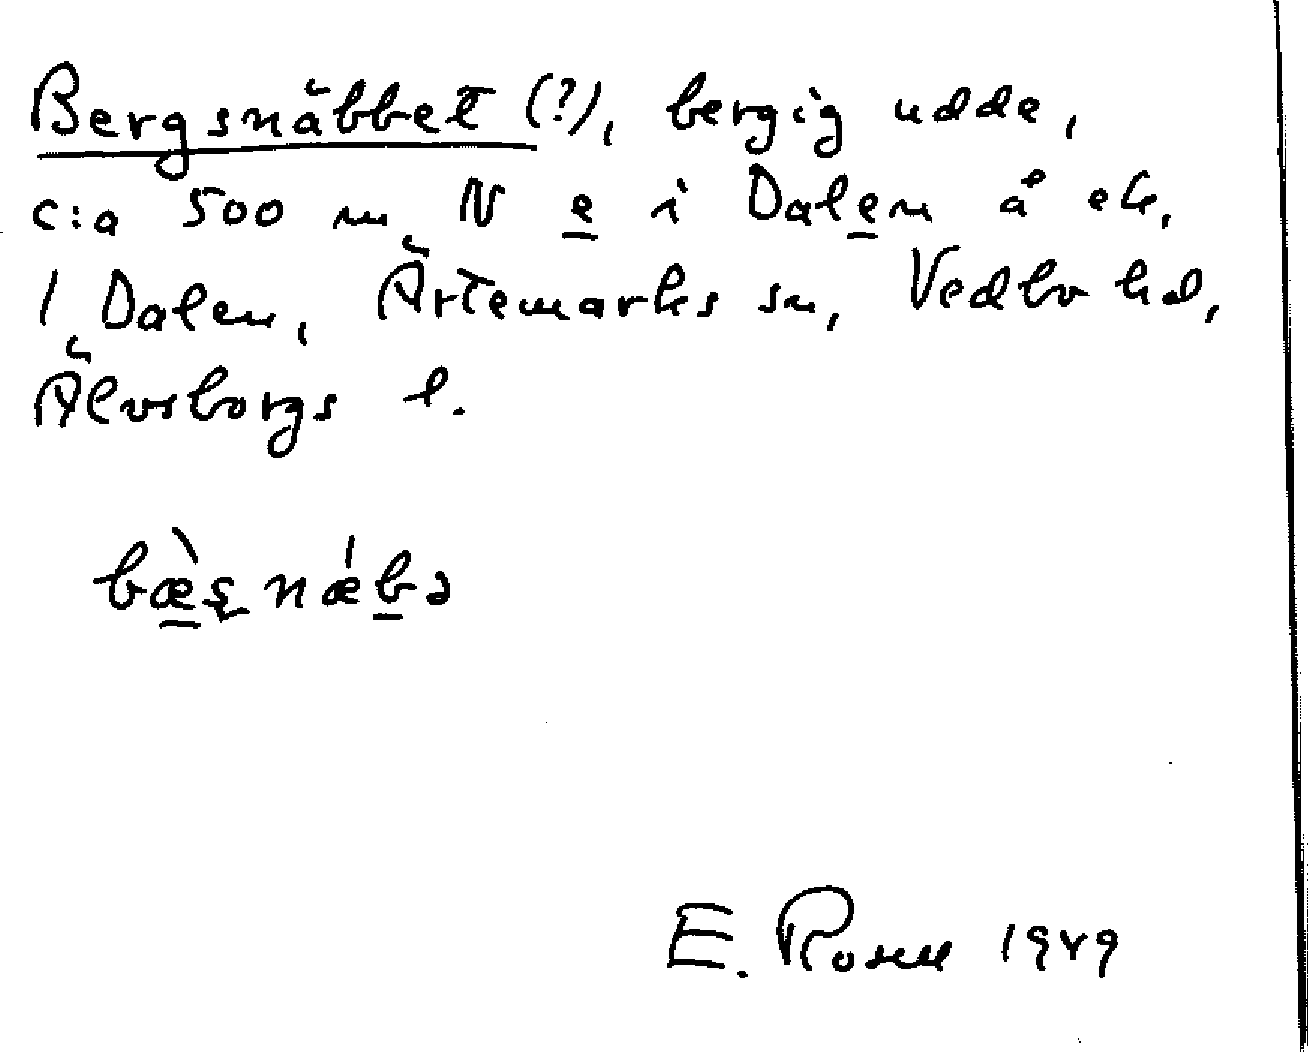 Bergsnäbbet (?), bergig udde,
c:a 500 m N e i Dalen å ek.
1 Dalen, Ärtemarks sn, Vedbo hd,
Älvsborgs l.
bæ̀s̨nǽbə
E. Rosell 1949